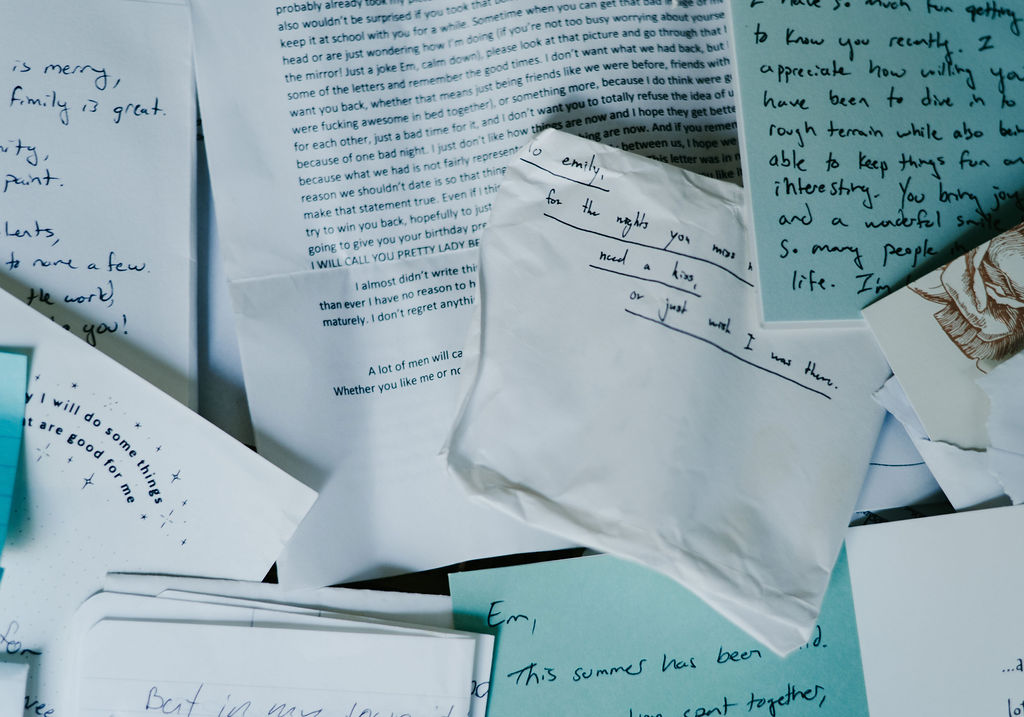 is merry,
fimily is great.
paint.
to name a few.
the work,
you!
probably already took my
also wouldn't be surprised if you took that
keep it at school with you for a while. Sometime when you can get that
head or are just wondering how I'm doing (if you're not too busy worrying about
the mirror! Just a joke Em, calm down), please look at that picture and go through that
some of the letters and remember the good times. I don't want what we had back, but
want you back, whether that means just being friends like we were before, friends with
were fucking awesome in bed together), or something more, because I do think were
for each other, just a bad time for it, and I don't want you to totally refuse the idea of
because of one bad night. I just don't like how things are now and I hope they get
because what we had is not fairly are now. And if you
reason we shouldn't date is so that between us, I hope we
make that statement true. Even if this this letter was in
try to win you back, hopefully to just
going to give you your birthday
I WILL CALL YOU PRETTY LADY
I almost didn't write
than ever I have no reason to
maturely. I don't regret
A lot of men will
Whether you like me or
To emily,
for the nights you miss
need a kiss,
or just wish I was there.
I have so much fun getting
to know you recently. I
appreciate how willing you
have been to dive in to
rough terrain while also
able to keep things fun
interesting. You bring joy
and a wonderful smile
so many people
life. I'm
I will do some things
are good for me
for
But in my
Em,
This summer has been
spent together,